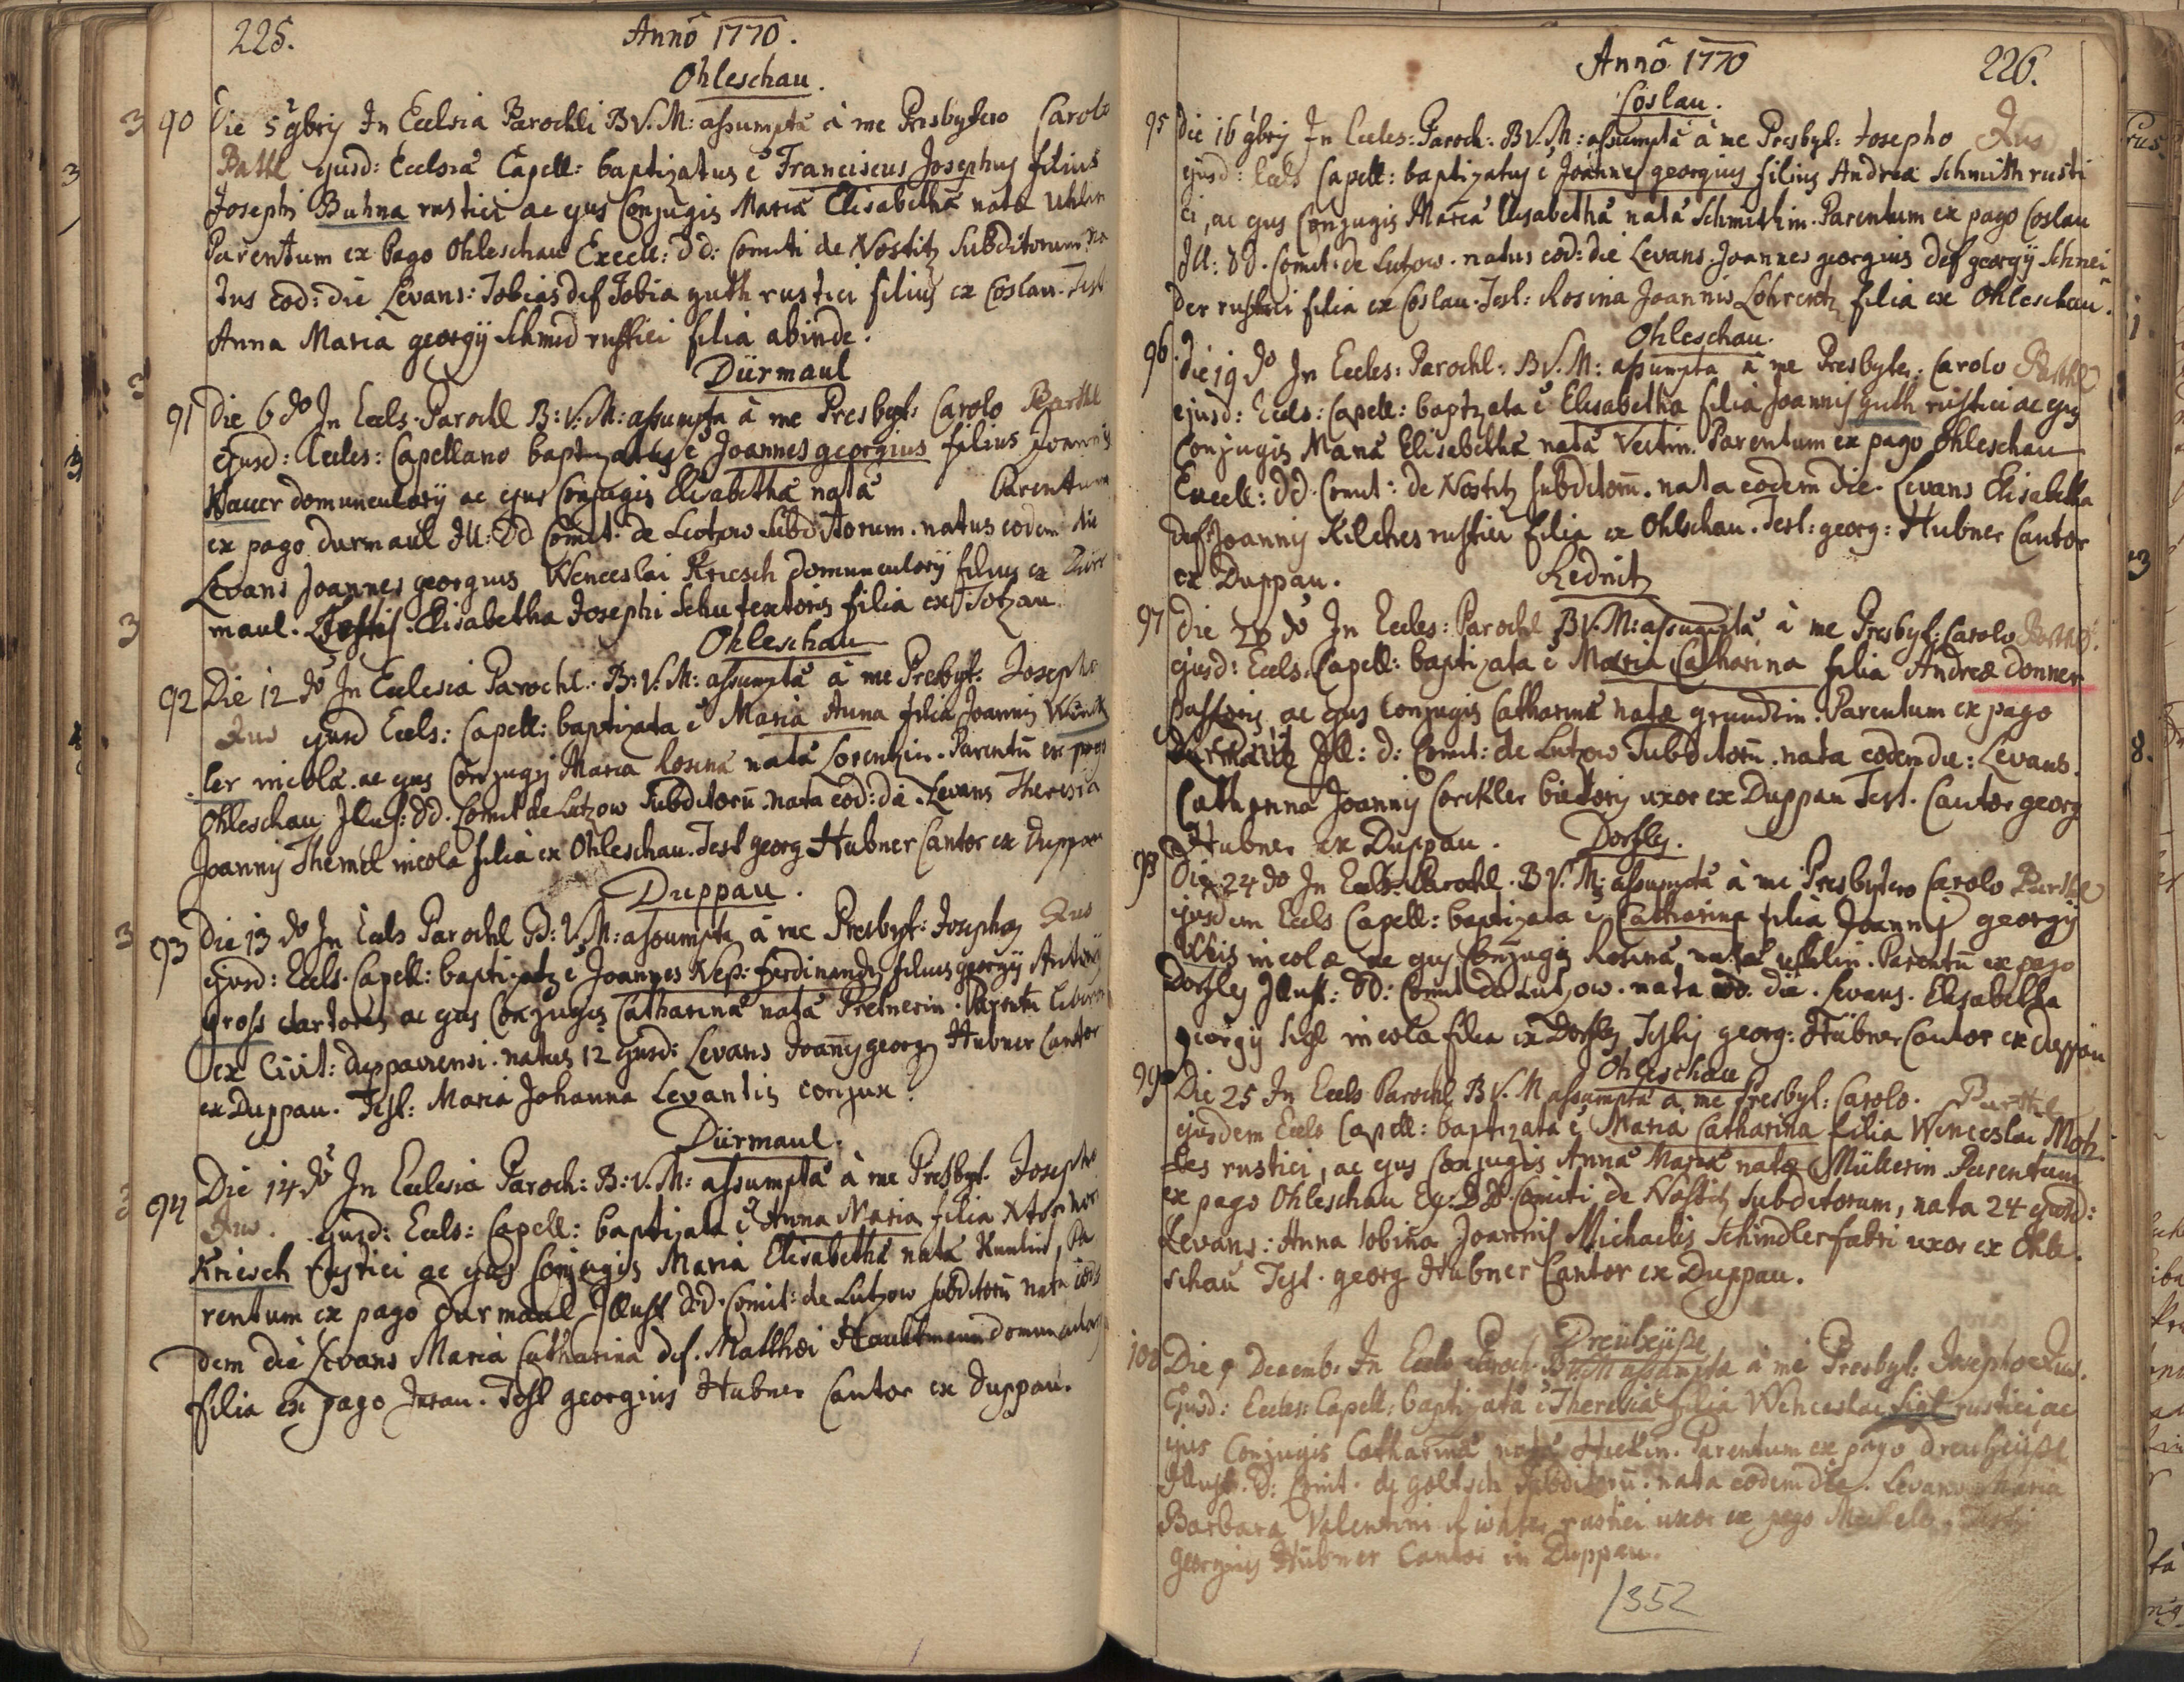 225.
Anno 1770.
Ohleschau.
90 Die 5 9bris In Ecclsia Parochli B.V.M: assumptâ à me Presbytero Carolo
Barthl ejusd: Ecclsiâ Capell: baptizatus ê Franciscus Josephus filius
Josephi Buhna rustici ac ejus Conjugis Maria Elisabetha nata
Parentum ex Pago Ohleschau Excell: dd: Comiti de Nostitz Subditorum Na
tus eod: die Levans: Tobias def Tobia guth rustici filius ex Coslau. Test
Anna Maria georgij Schmid rustici filia abinde.
Dürmaul
91 Die 6 do In Eccls. Parochl B:V:M: assumpta à me Presbyt: Carolo Barthl
ejusd: Eccles: Capellano baptizatus ê Joannes georgius filius Joannis
domuncularij ac ejus Conjugis Elisabetha nata Parentum
ex pago durmaul Ill: Dd Comit. de Lutzow Subditorum. natus eodem die
Levans Joannes georgius Wenceslai Kriesch domuncularij filius ex Dürr
maul. Testis. Elisabetha Josephi Schu textoris filia ex Totzau.
Ohleschau
92 Die 12 do In Ecclesia Parochl. B:V:M: assumptâ à me Presbyt: Josepho
ejusd Eccls: Capell: baptizata ê Maria Anna filia Joannis
ler incola. ac ejus Conjugis Maria Rosina nata Lorentzin. Parentū ex pago
Ohleschau Illus: dd. Comit de Lutzow Subditorū. nata eod: die. Levans Theresia
Joannis Themel incola filia ex Ohleschau. Test georg Hubner Cantor ex Duppau
Duppau.
93 Die 13 do In Eccls Parochl B:V:M: assumpta à me Presbyt: Josepho
ejusd: Eccls. Capell: baptizatz ê Joannes Nep: ferdinandz filius georgij Antonij
gross sartoris ac ejus Conjugis Catharina nata Pretnerin. Parentū
ex Civit: duppaviensi. natus 12 ejusd: Levans Joannes georg Hubner Cantor
ex Duppau. Test: Maria Johanna Levantis conjux.
Dürmaul.
94 Die 14 do In Ecclesia Paroch: B:V:M: assumptâ à me Presbyt. Josepho
ejusd: Eccls: Capell: baptizata ê Anna Maria filia
Kriesch rustici ac ejus Conjugis Maria Elisabetha nata Pa
rentum ex pago durmaul Illust dd. Comit: de Lutzow subditorū nata eo
dem die Levans Maria Catharina def. Matthæi Haubtmann
filia ex pago Jurau. Test georgius Hubner Cantor ex duppau.
Anno 1770
226.
Coslau.
95 Die 16 9bris In Eccles: Paroch: B.V.M: assumptâ à me Presbyt: Josepho
ejusd: Eccls Capell: baptizatus ê Joannes georgius filius Andreæ Schmith rusti
ci, ac ejus Conjugis Maria Elisabetha nata Schmithin. Parentum ex pago Coslau
Ill: dd. Comit: de Lutzow. natus eod: die Levans. Joannes georgius def georgij Schnei
der rustici filia ex Coslau. Test: Rosina Joannis Lohrentz filia ex Ohleschau.
Ohleschau.
96. Die 19 do In Eccles: Parochl: B.V.M: assumpta à me Presbyte. Carolo Barthl
ejusd: Eccls: Capell: baptzata ê Elisabetha filia Joannis guth rustici ac ejus
Conjugis Maria Elisabetha nata Parentum ex pago Ohleschau
Excell: dd. Comit: de Nostitz subditorū. nata eodem die. Levans Elisabetha
def Joannis Kilches rustici filia ex Ohlschau. Test: georg: Hubner Cantor
ex Duppau.
Rednitz
97 Die 20 do In Eccles: Parochl B.V.M: assumpta à me Presbyt: Carolo Barthl.
ejusd: Eccls. Capell: baptizata ê Maria Catharina filia Andreæ donner
pastoris ac ejus Conjugis Catharina nata grundtin. Parentum ex pago
Ill: d: Comit: de Lutzow Subditorū. nata eodem die: Levans.
Catharina Joannis uxor ex Duppau Test. Cantor georg
Hubner ex Duppau.
Dorfles.
98 Die 24 do In Eccls. Parochl. B.V.M: assumptâ à me Presbytero Carolo Barthl
ejusdem Eccls Capell: baptizata ê Catharina filia Joannis georgij
Weis incolæ ac ejus Conjugis Rosina nata Parentū ex pago
Dorfles Illust: dd: Comit de Lutzow. nata eod. die. Levans. Elisabetha
georgij incola filia ex Dorfles Testis georg: Hubner Cantor ex duppau
Ohleschau
99 Die 25 In Eccls Parochl B.V.M assumpta à me Presbyt: Carolo. Barthl
ejusdem Eccls Capell: baptizata ê Maria Catharina filia Wenceslai
les rustici, ac ejus Conjugis Anna Maria nata Müllerin. Parentum
ex pago Ohleschau Ex. Dd Comiti de Nostitz subditorum, nata 24 ejusd:
Levans: Anna Sobina Joannis Michaelis Schindler fabri uxor ex Ohle
schau Test. georg Hubner Cantor ex Duppau.
100 Die 9 Decemb: In Eccls Paroch. B.V.M assumpta à me Presbyt: Josepho
Ejusd: Eccles: Capell: baptizata ê Theresia filia Wenceslai rustici ac
ejus Conjugis Catharina nata Parentum ex pago
Illust. D: Comit. de goltsch subditorū. nata eodem die. Levans Maria
Barbara Valentini rustici uxor ex pago
georgius Hübner Cantor in Duppau.
352